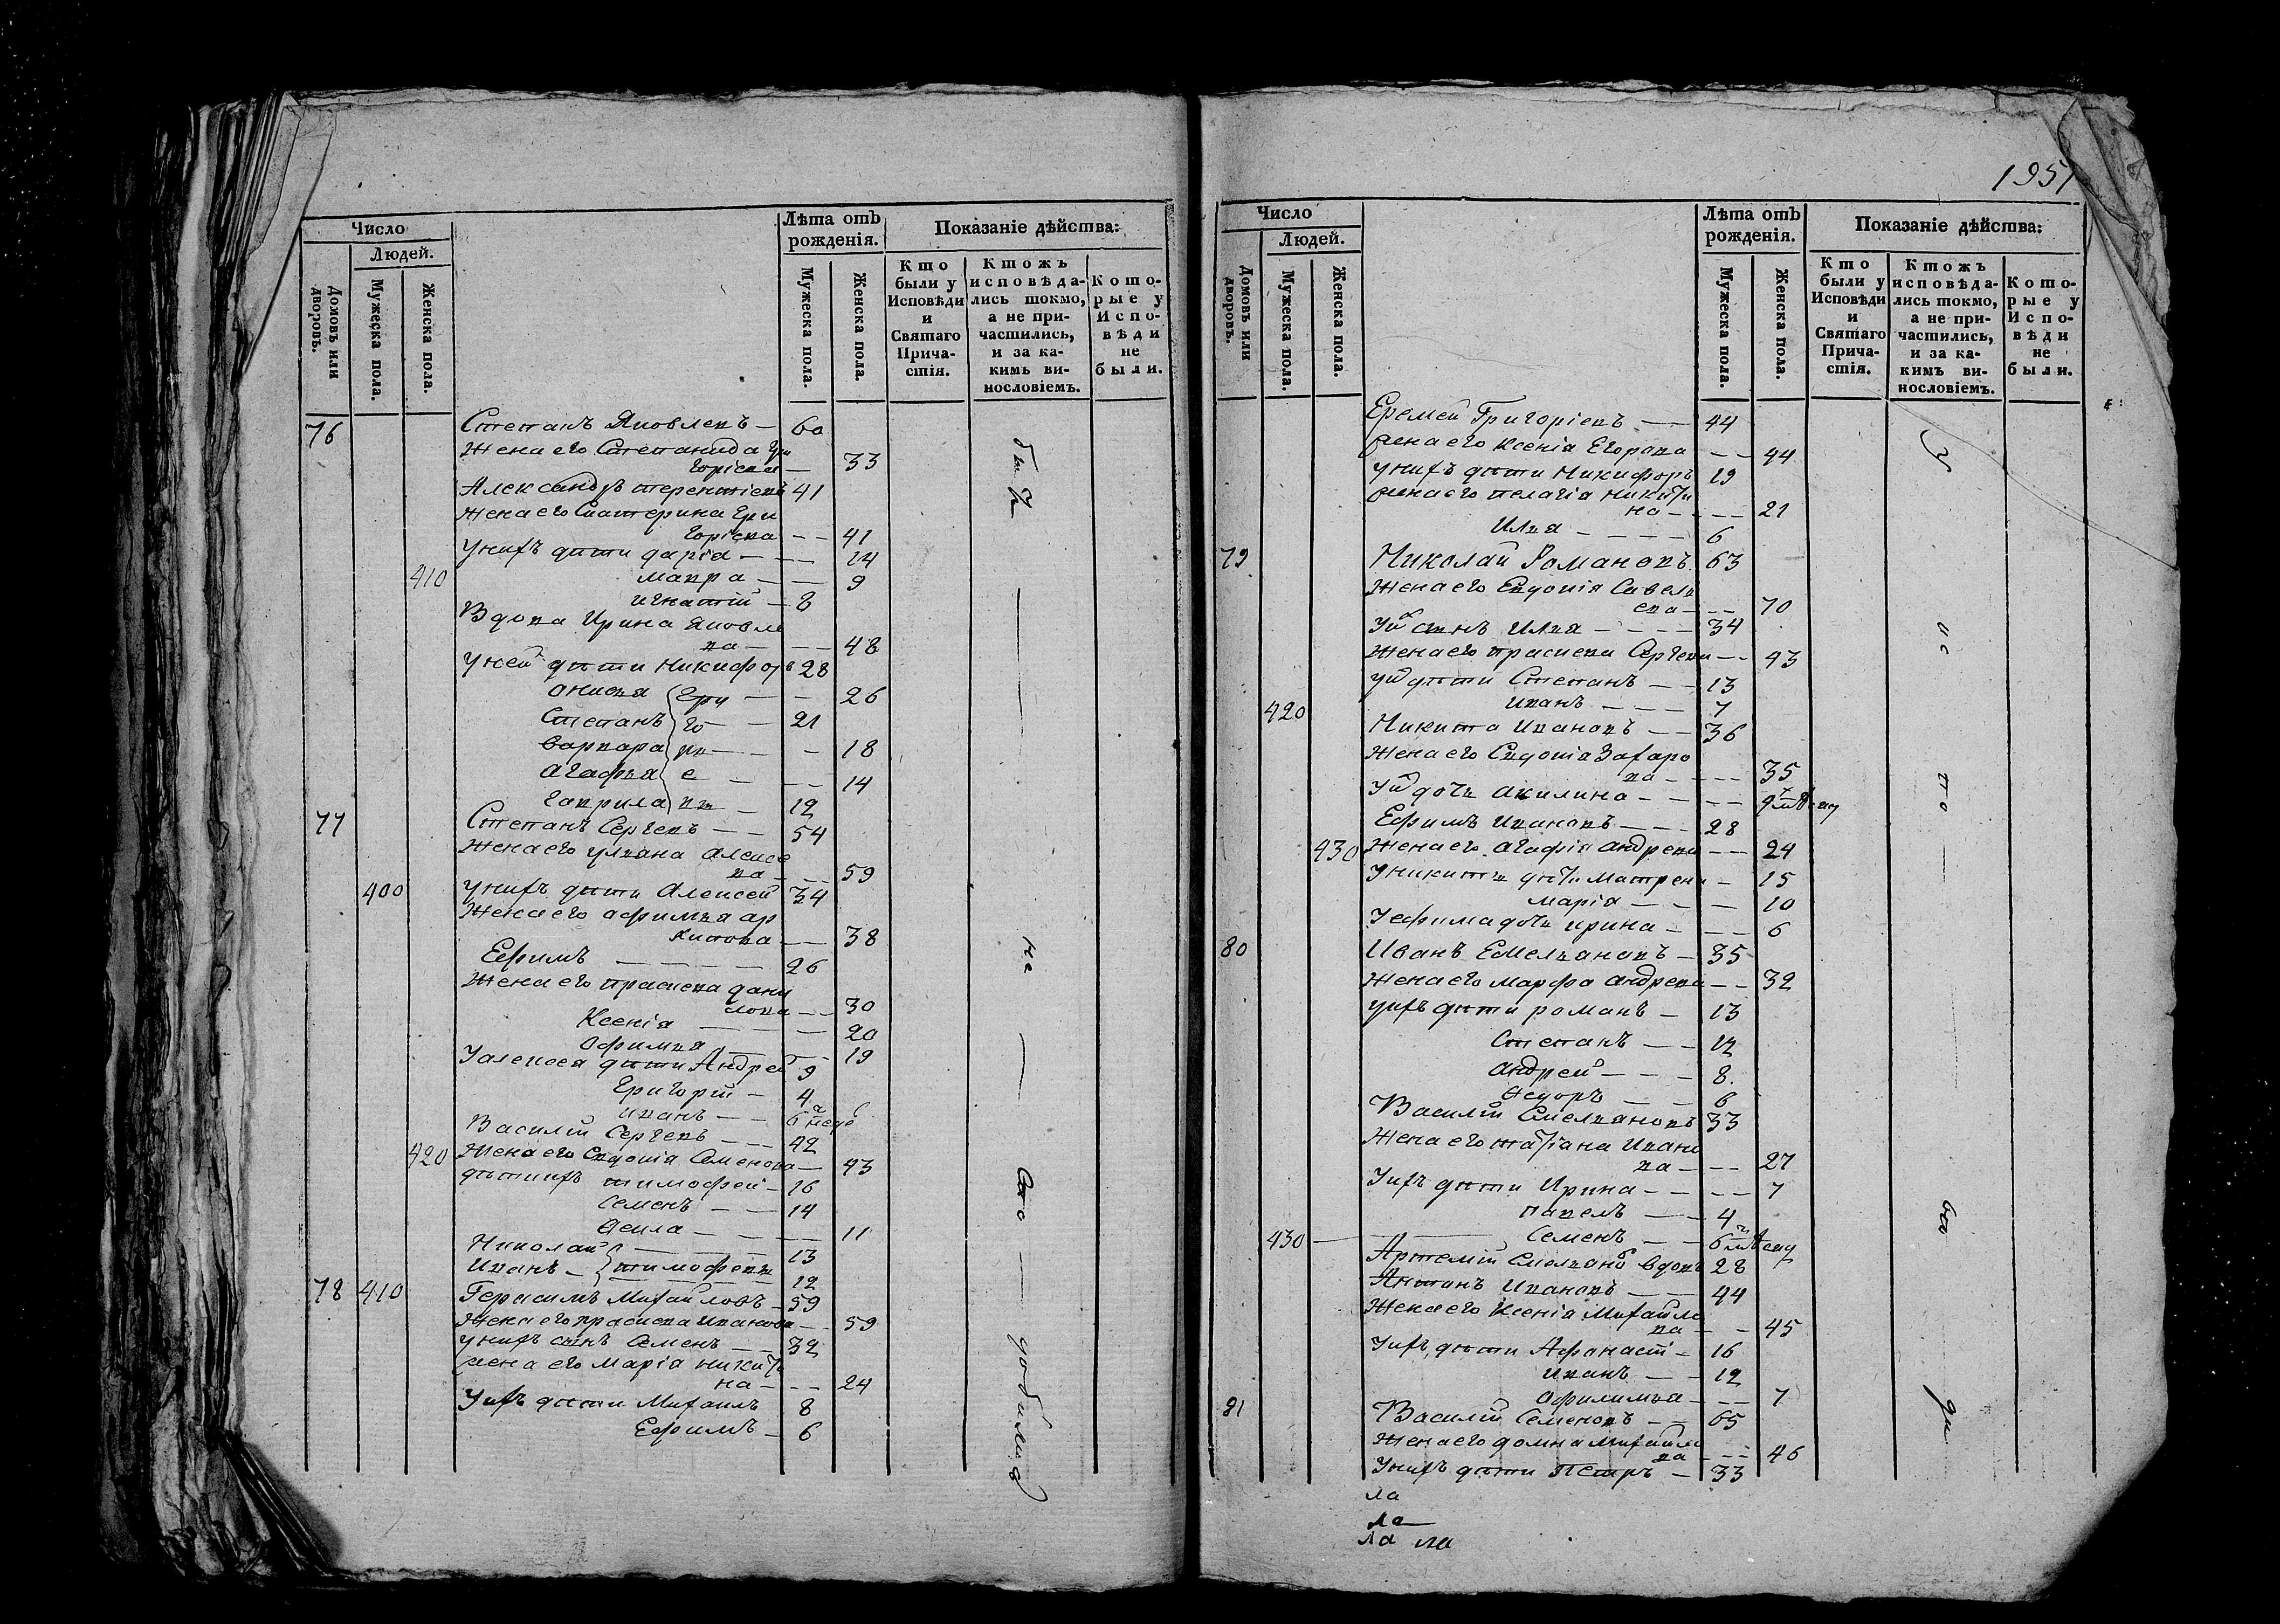 Число
Людей.
Домовъ или дворовъ.
Мужеска пола.
Женска пола.
Лѣта отъ рожденія.
Мужеска пола.
Женска пола.
Показаніе дѣйства:
Кто были у Исповѣди и Святаго Причастія.
Ктожъ исповѣдались токмо, а не причастились, и за какимъ винословіемъ.
Которые у Исповѣди не были.
76 Степанъ Яковлевъ — 60
Жена его Степанида Гри
горіева — 33
Александръ терентіевъ 41
Жена его Катерина Гри
горіева — — 41
У нихъ дѣти дарія — — 14
410 мавра — — 9
игнатій — 8
Вдова Ирина Яковле
ва — — 48
У ней дѣти Никифоръ 28
Степанъ го — — 21
варвара рь — — 18
Агафья е — — 14
гаврила вы — 12
77 Степанъ Сергеевъ — — 54
Жена его ульяна Алексе
ва — — 59
400 У нихъ дѣти Алексей 34
Жена его афимья ар
хипова — — 38
Ефимъ — — — — 26
Жена его прасковья дани
лова — — 30
Ксенія — — — 20
Афимья — — 19
У алексея дѣти Андрей 9
Григорій — 4
иванъ — — 6 неде
Василій Сергеевъ — — 42
420 Жена его Евдокія Семенова — 43
дѣти ихъ тимофей — 16
Семенъ — — 14
Акила — — — 11
Николай — — — 13
Иванъ — тимофеевы 12
78 410 Герасимъ Михайловъ — 59
Жена его прасковья Иванова — 59
У нихъ сынъ Семенъ — — 32
жена его марія никити
на — — — 24
У ихъ дѣти Михаилъ 8
Ефимъ — 6
не
1951
Число
Людей.
Домовъ или дворовъ.
Мужеска пола.
Женска пола.
Лѣта отъ рожденія.
Мужеска пола.
Женска пола.
Показаніе дѣйства:
Кто были у Исповѣди и Святаго Причастія.
Ктожъ исповѣдались токмо, а не причастились, и за какимъ винословіемъ.
Которые у Исповѣди не были.
Еремей Григоріевъ — 44
жена его Ксенія Егорова — — 44
У нихъ дѣти Никифоръ 19
жена его пелагія никити
на — — — 21
Илья — — — — 6
79 Николай Романовъ. 63
Жена его Евдокія Савель
ева — — — 70
У ни сынъ Илья — — — — 34
Жена его прасковья Сергеева — — 43
У ни дѣти Степанъ — — 13
420 иванъ — — — 7
Никита Ивановъ — — 36
Жена его Евдокія Захаро
ва — — — — 35
У ни дочь Акилина — — — —
Ефимъ Ивановъ — — — 28
430 Жена его агафія андреева — — 24
У никиты дѣти матрена — 15
марія — — — 10
У ефима дочь ирина — — — 6
80 Иванъ Емельяновъ — 35
Жена его марфа андреева — — 32
у ихъ дѣти романъ — 13
Степанъ — — 12
Андрей — — — 8.
Федоръ — — 6
Василій Емельяновъ 33
Жена его татіана Ивано
ва — — — 27
У ихъ дѣти Ирина — — — — 7
павелъ — — 4
430 Семенъ — — 6
Артемій Емельяно вдовъ 28
Антонъ Ивановъ — — 44
Жена его Ксенія Михайло
ва — — 45
У ихъ дѣти Афанасій — 16
иванъ — — 12
— — — 7
81 Василій Семеновъ — — 65
Жена его домна михайло
ва — — — 46
У нихъ дѣти Петръ — 33
у
ис
по
вѣ
ди
ла
ла
ла ла